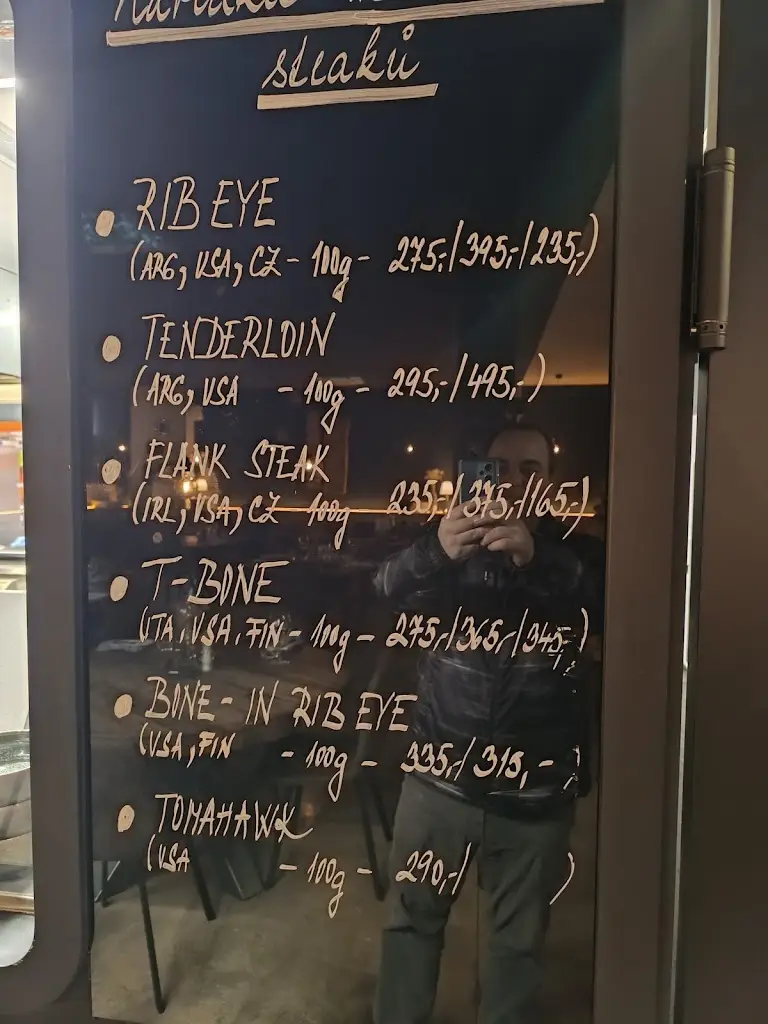 steaků
• RIB EYE
(ARG, USA, CZ - 100g - 275,-/395,-/235,-)
• TENDERLOIN
(ARG, USA - 100g - 295,-/495,-)
• FLANK STEAK
(IRL, USA, CZ 100g 235,-/375,-/165,-)
• T-BONE
(ITA, USA, FIN - 100g - 275,-/365,-/345,-)
• BONE-IN RIB EYE
(USA, FIN - 100g - 335,-/315,-)
• TOMAHAWK
(USA - 100g - 290,-/ )